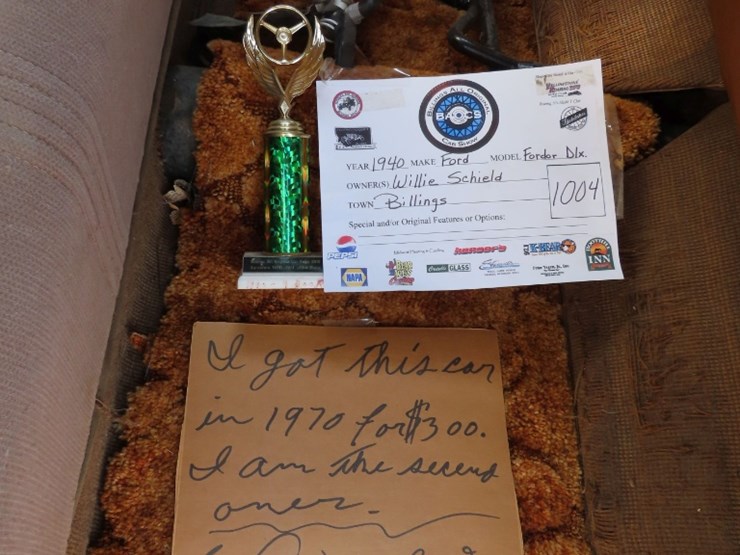 BILLINGS ALL ORIGINAL
BACS
CAR SHOW
YEAR 1940 MAKE Ford MODEL Fordor Dlx.
OWNER(S) Willie Schield
TOWN Billings
1004
Special and/or Original Features or Options:
PEPSI
NAPA
Hansers
GLASS
INN
I got this car
in 1970 for $300.
I am the second
oner.